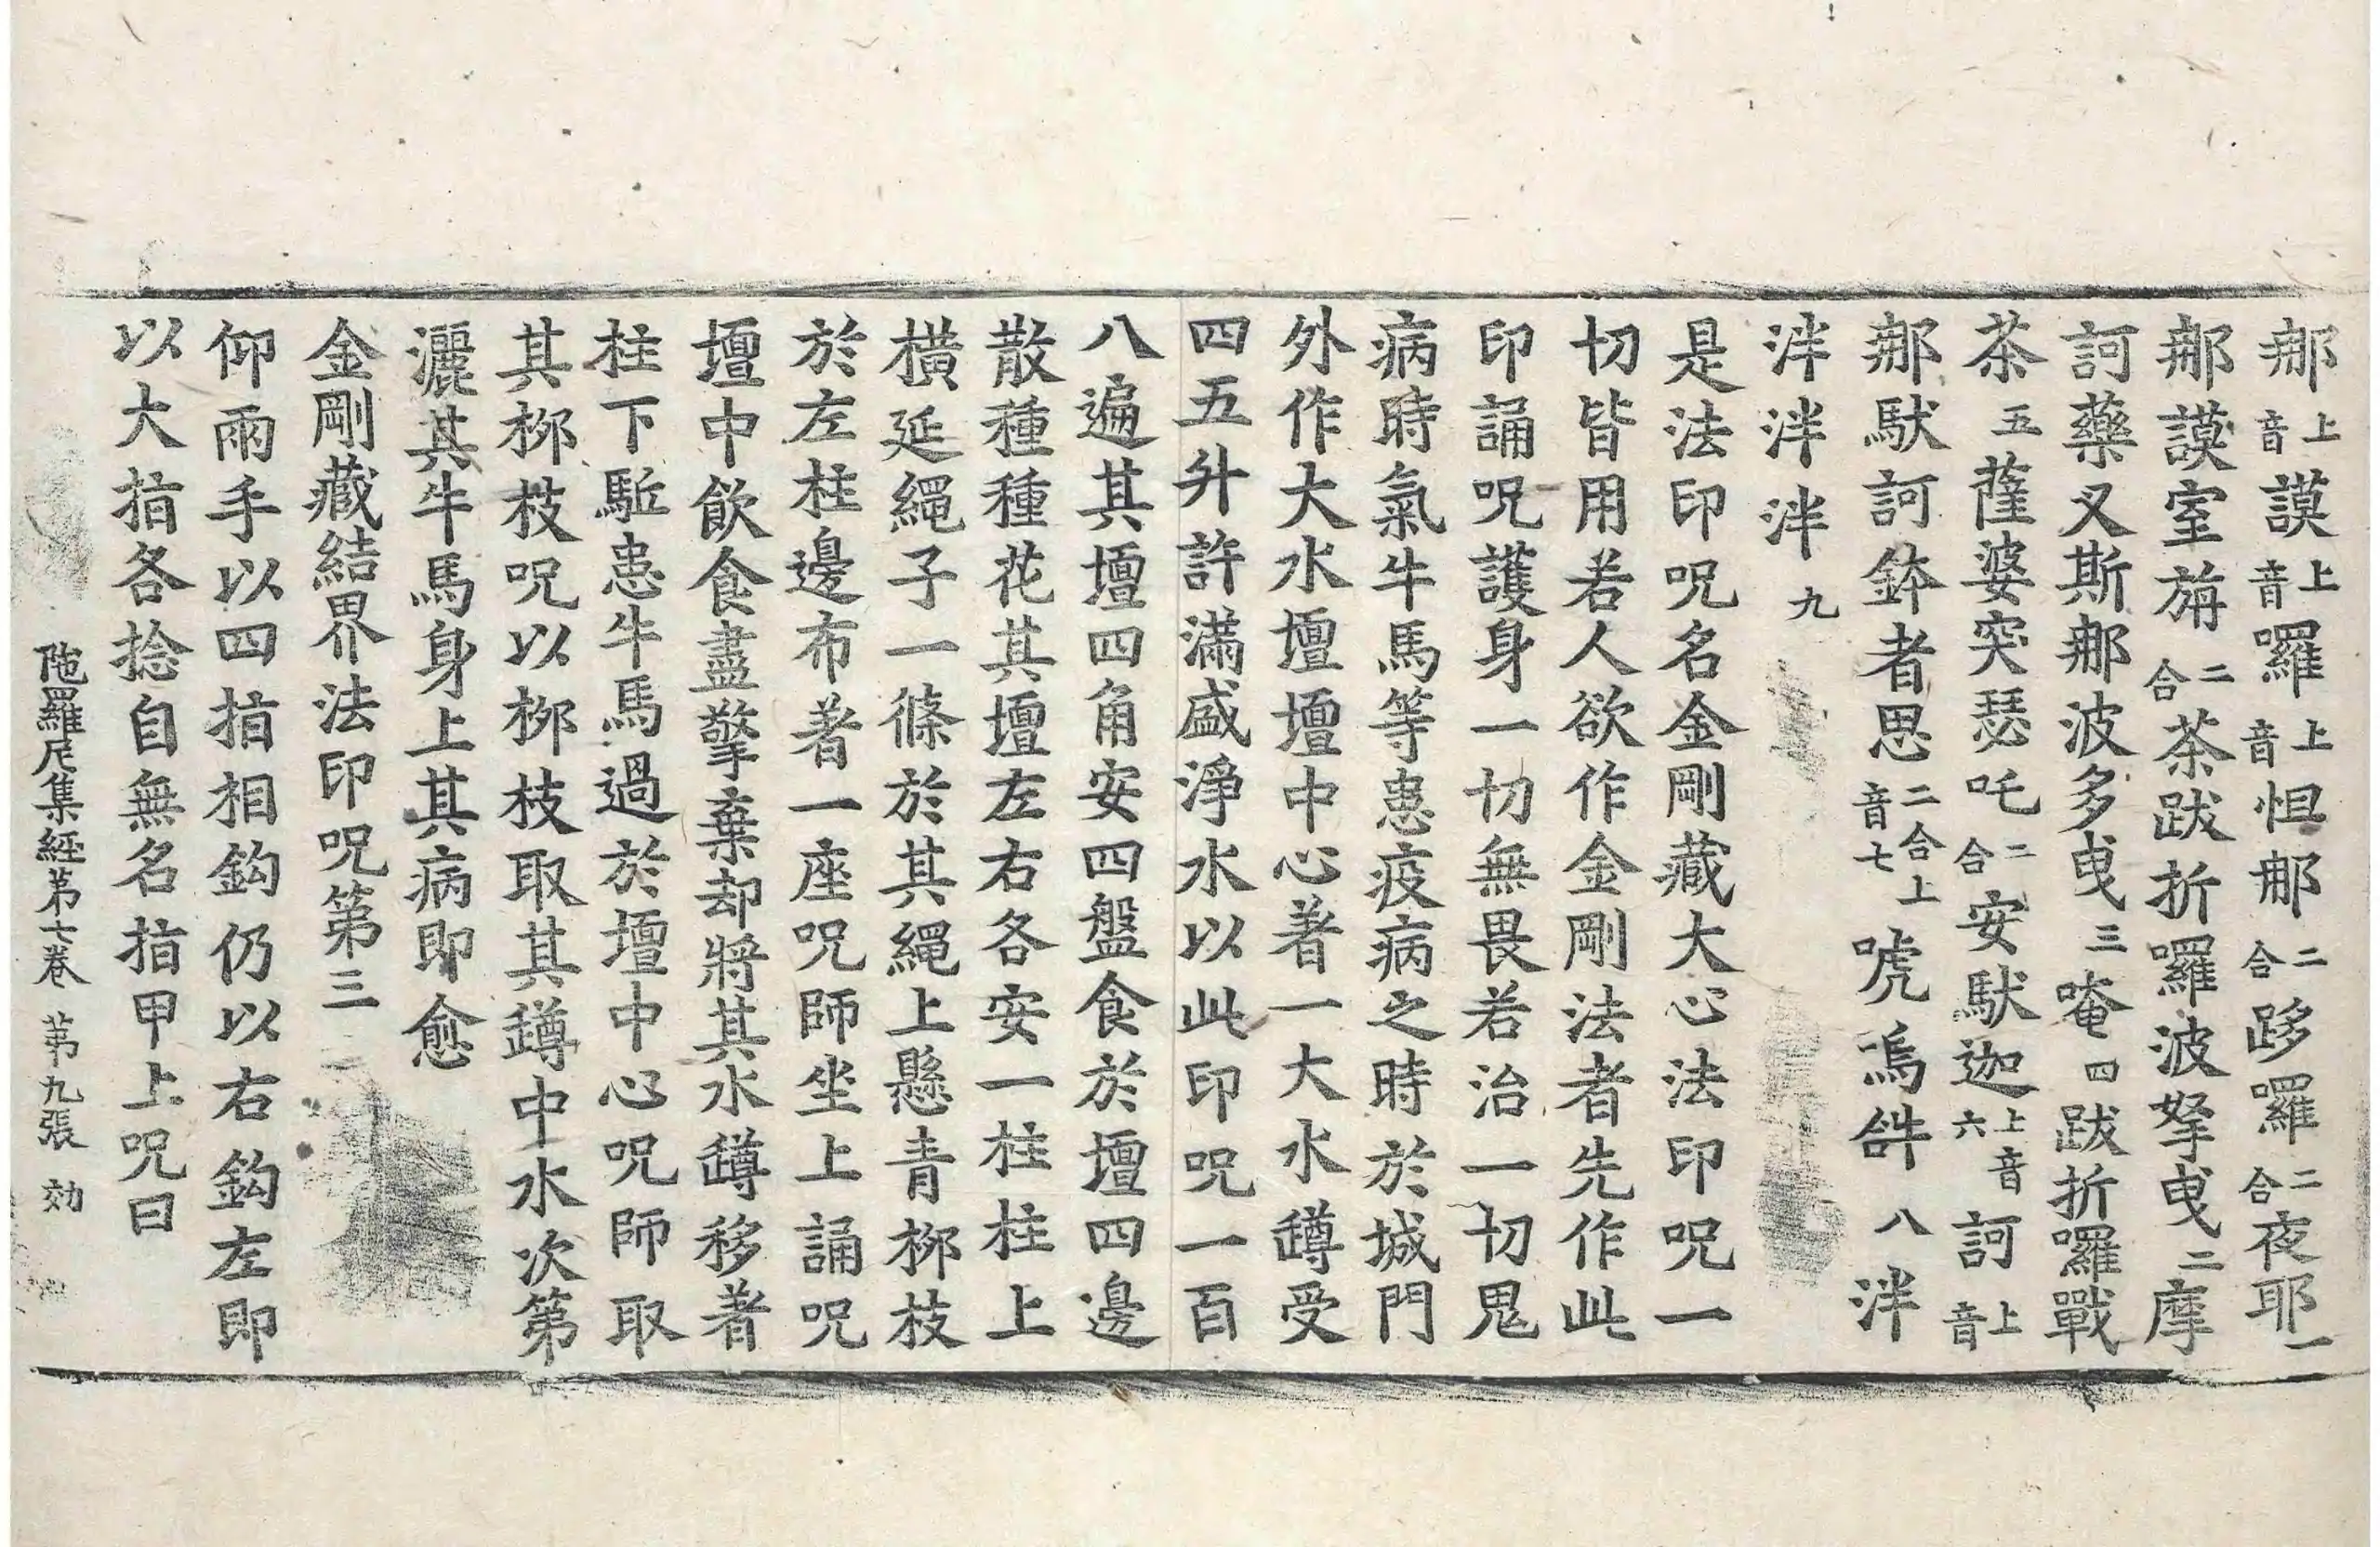 那上音謨上音囉上音怛那二合跢囉二合夜耶一
那謨室旃二合茶跋折囉波拏曳二摩
訶藥叉斯那波多曳三唵四跋折囉戰
茶五薩婆突瑟吒二合安馱迦上音六訶上音
那馱訶鉢者思二合上音七唬𤙖䤈八泮
泮泮泮九
是法印呪名金剛藏大心法印呪一
切皆用若人欲作金剛法者先作此
印誦呪護身一切無畏若治一切鬼
病時氣牛馬等患疫病之時於城門
外作大水壇壇中心著一大水罇受
四五升許滿盛淨水以此印呪一百
八遍其壇四角安四盤食於壇四邊
散種種花其壇左右各安一柱柱上
橫延繩子一條於其繩上懸青柳枝
於左柱邊布著一座呪師坐上誦呪
壇中飲食盡擎棄却將其水罇移著
柱下駈患牛馬過於壇中心呪師取
其柳枝呪以柳枝取其罇中水次第
灑其牛馬身上其病即愈
金剛藏結界法印呪第三
仰兩手以四指相鈎仍以右鈎左即
以大指各捻自無名指甲上呪曰
陁羅尼集經第七卷 第九張 効